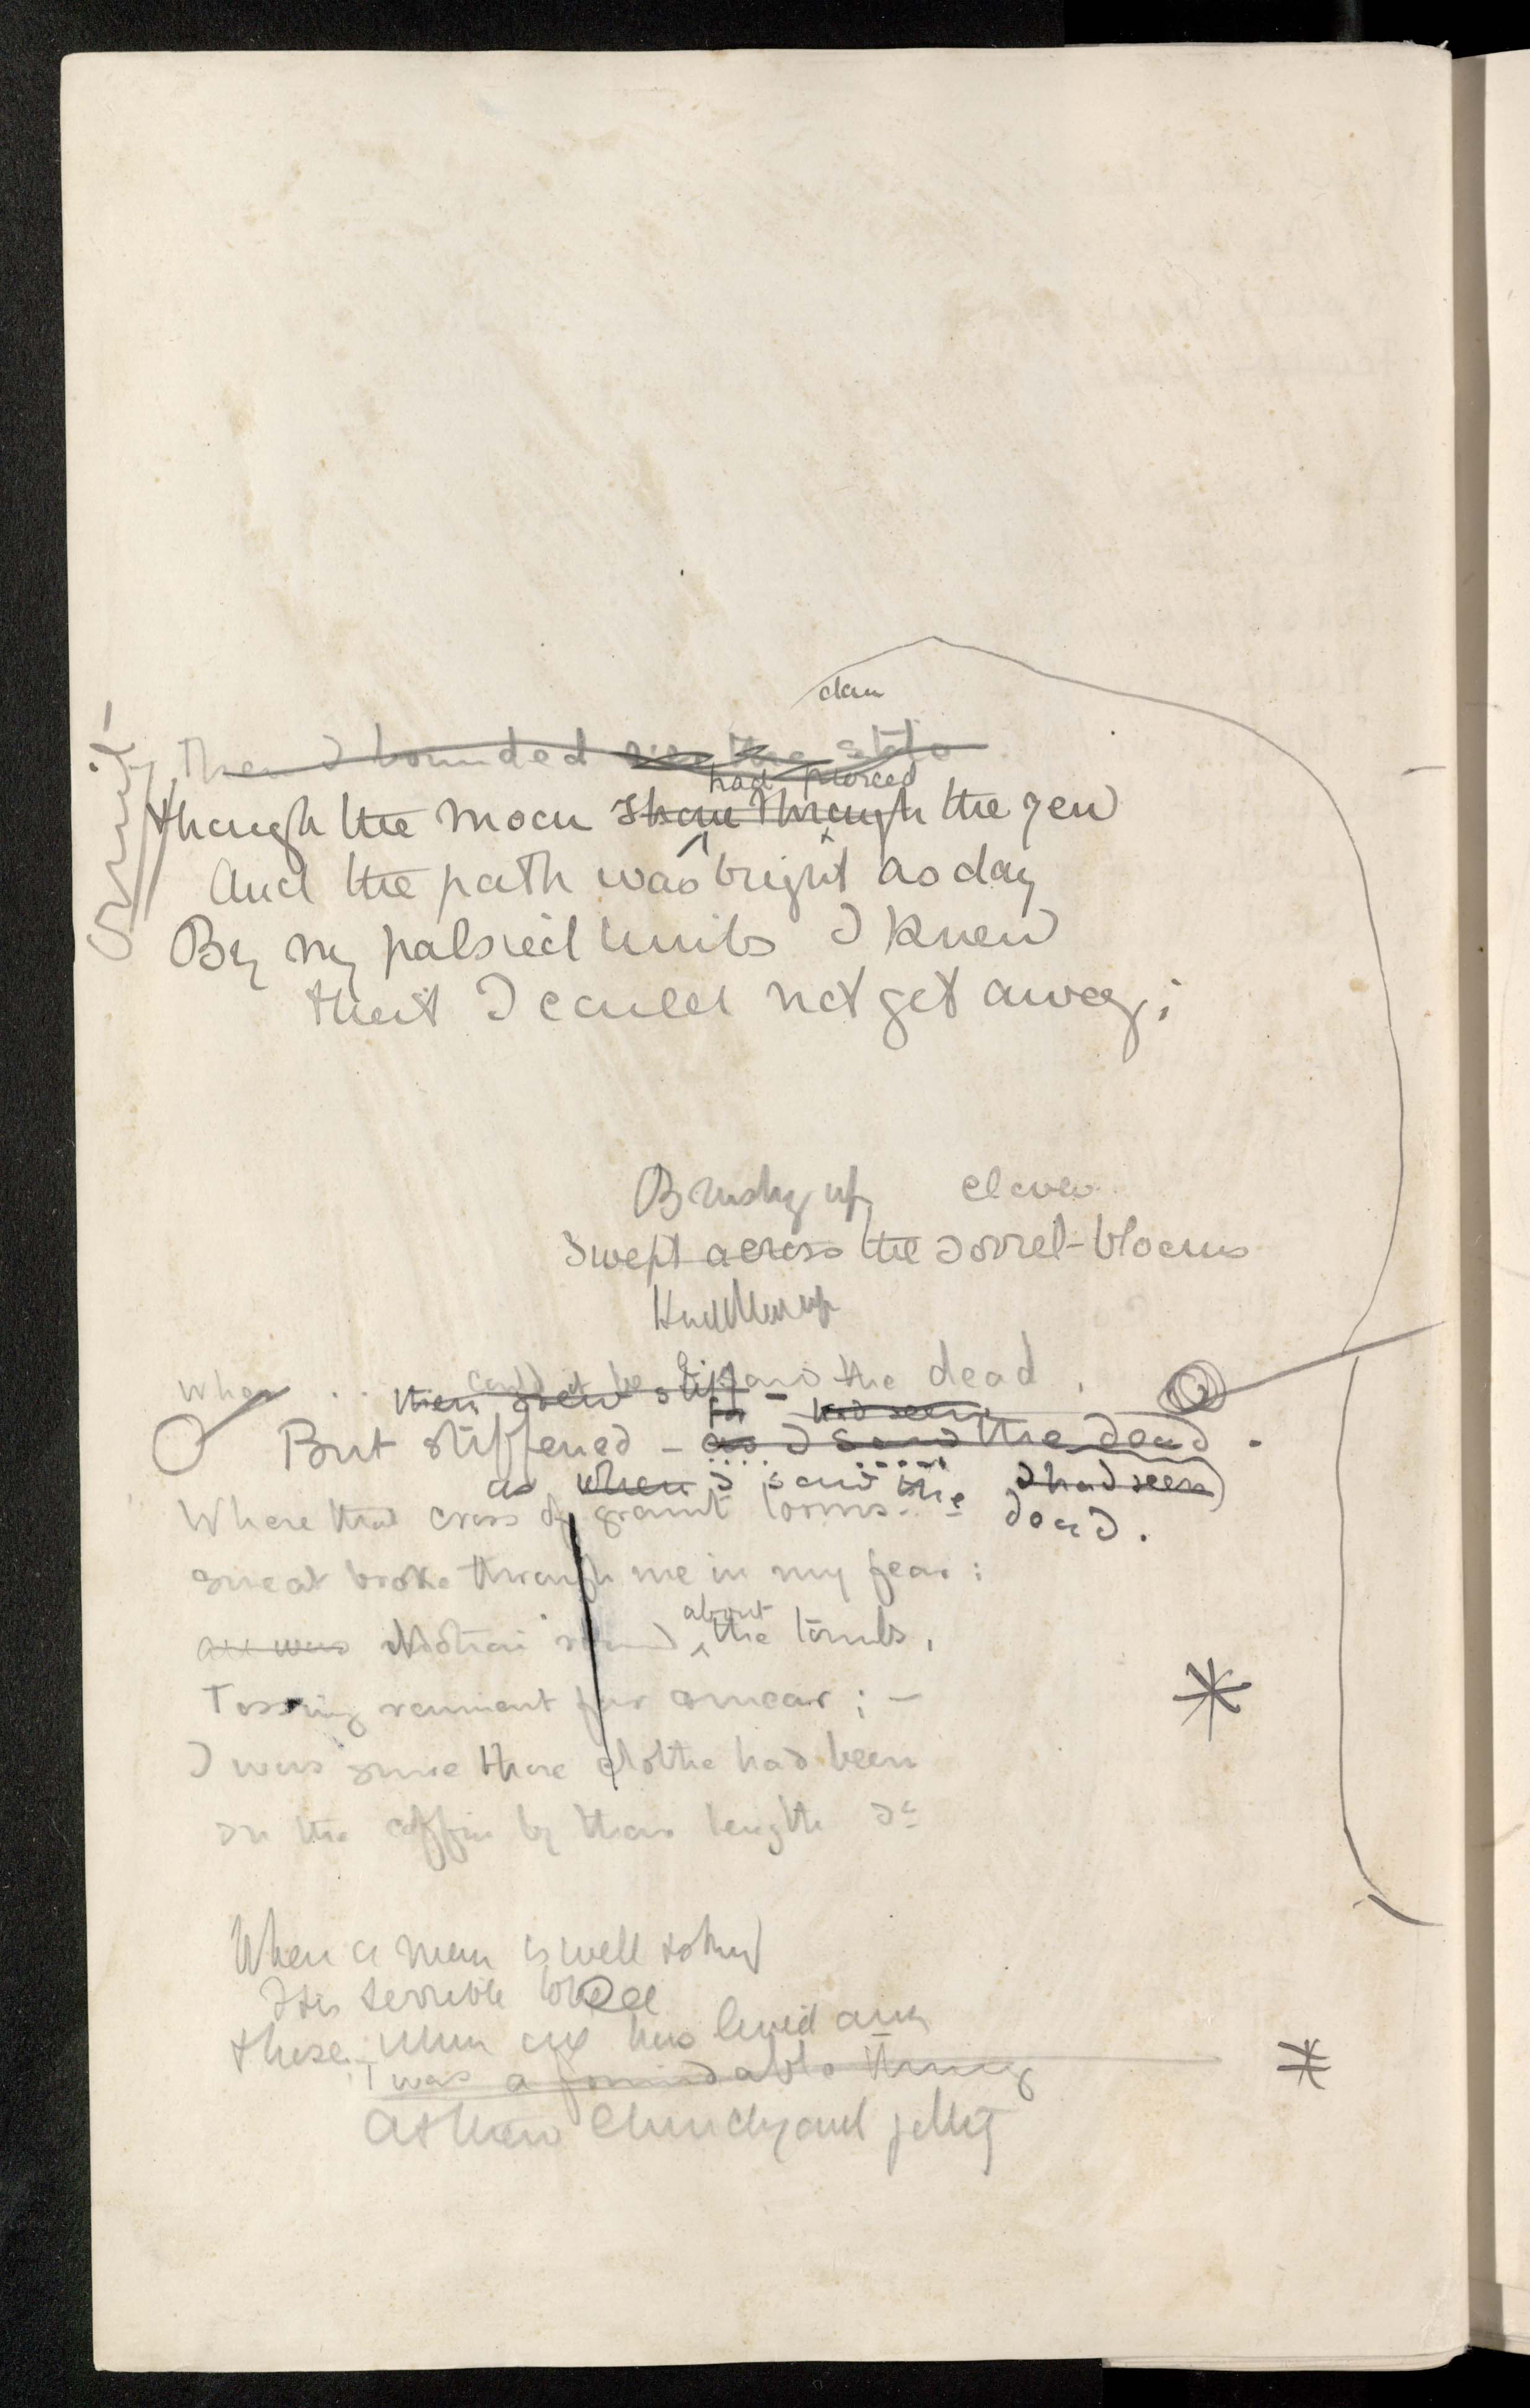 Then I bounded over the stile
had pierced
though the moon shone through the yew
And the path was bright as day
By my palsied limbs I knew
that I could not get away;
Brushing up clover
Swept across the sorrel-blooms
When
the dead,
then grew stiff -
had seen
But stiffened - as I saw the dead.
as when I saw the
I had seen
dead.
Where that cross of granit looms.
Sweat broke through me in my fear:
about
sound the tombs,
Tossing raiment far anear; -
I was sure there clothe had been
In the coffin by their length
When a man is well
It is terrible
these. When
I was a formidable thing
At thin Churchyard
omit